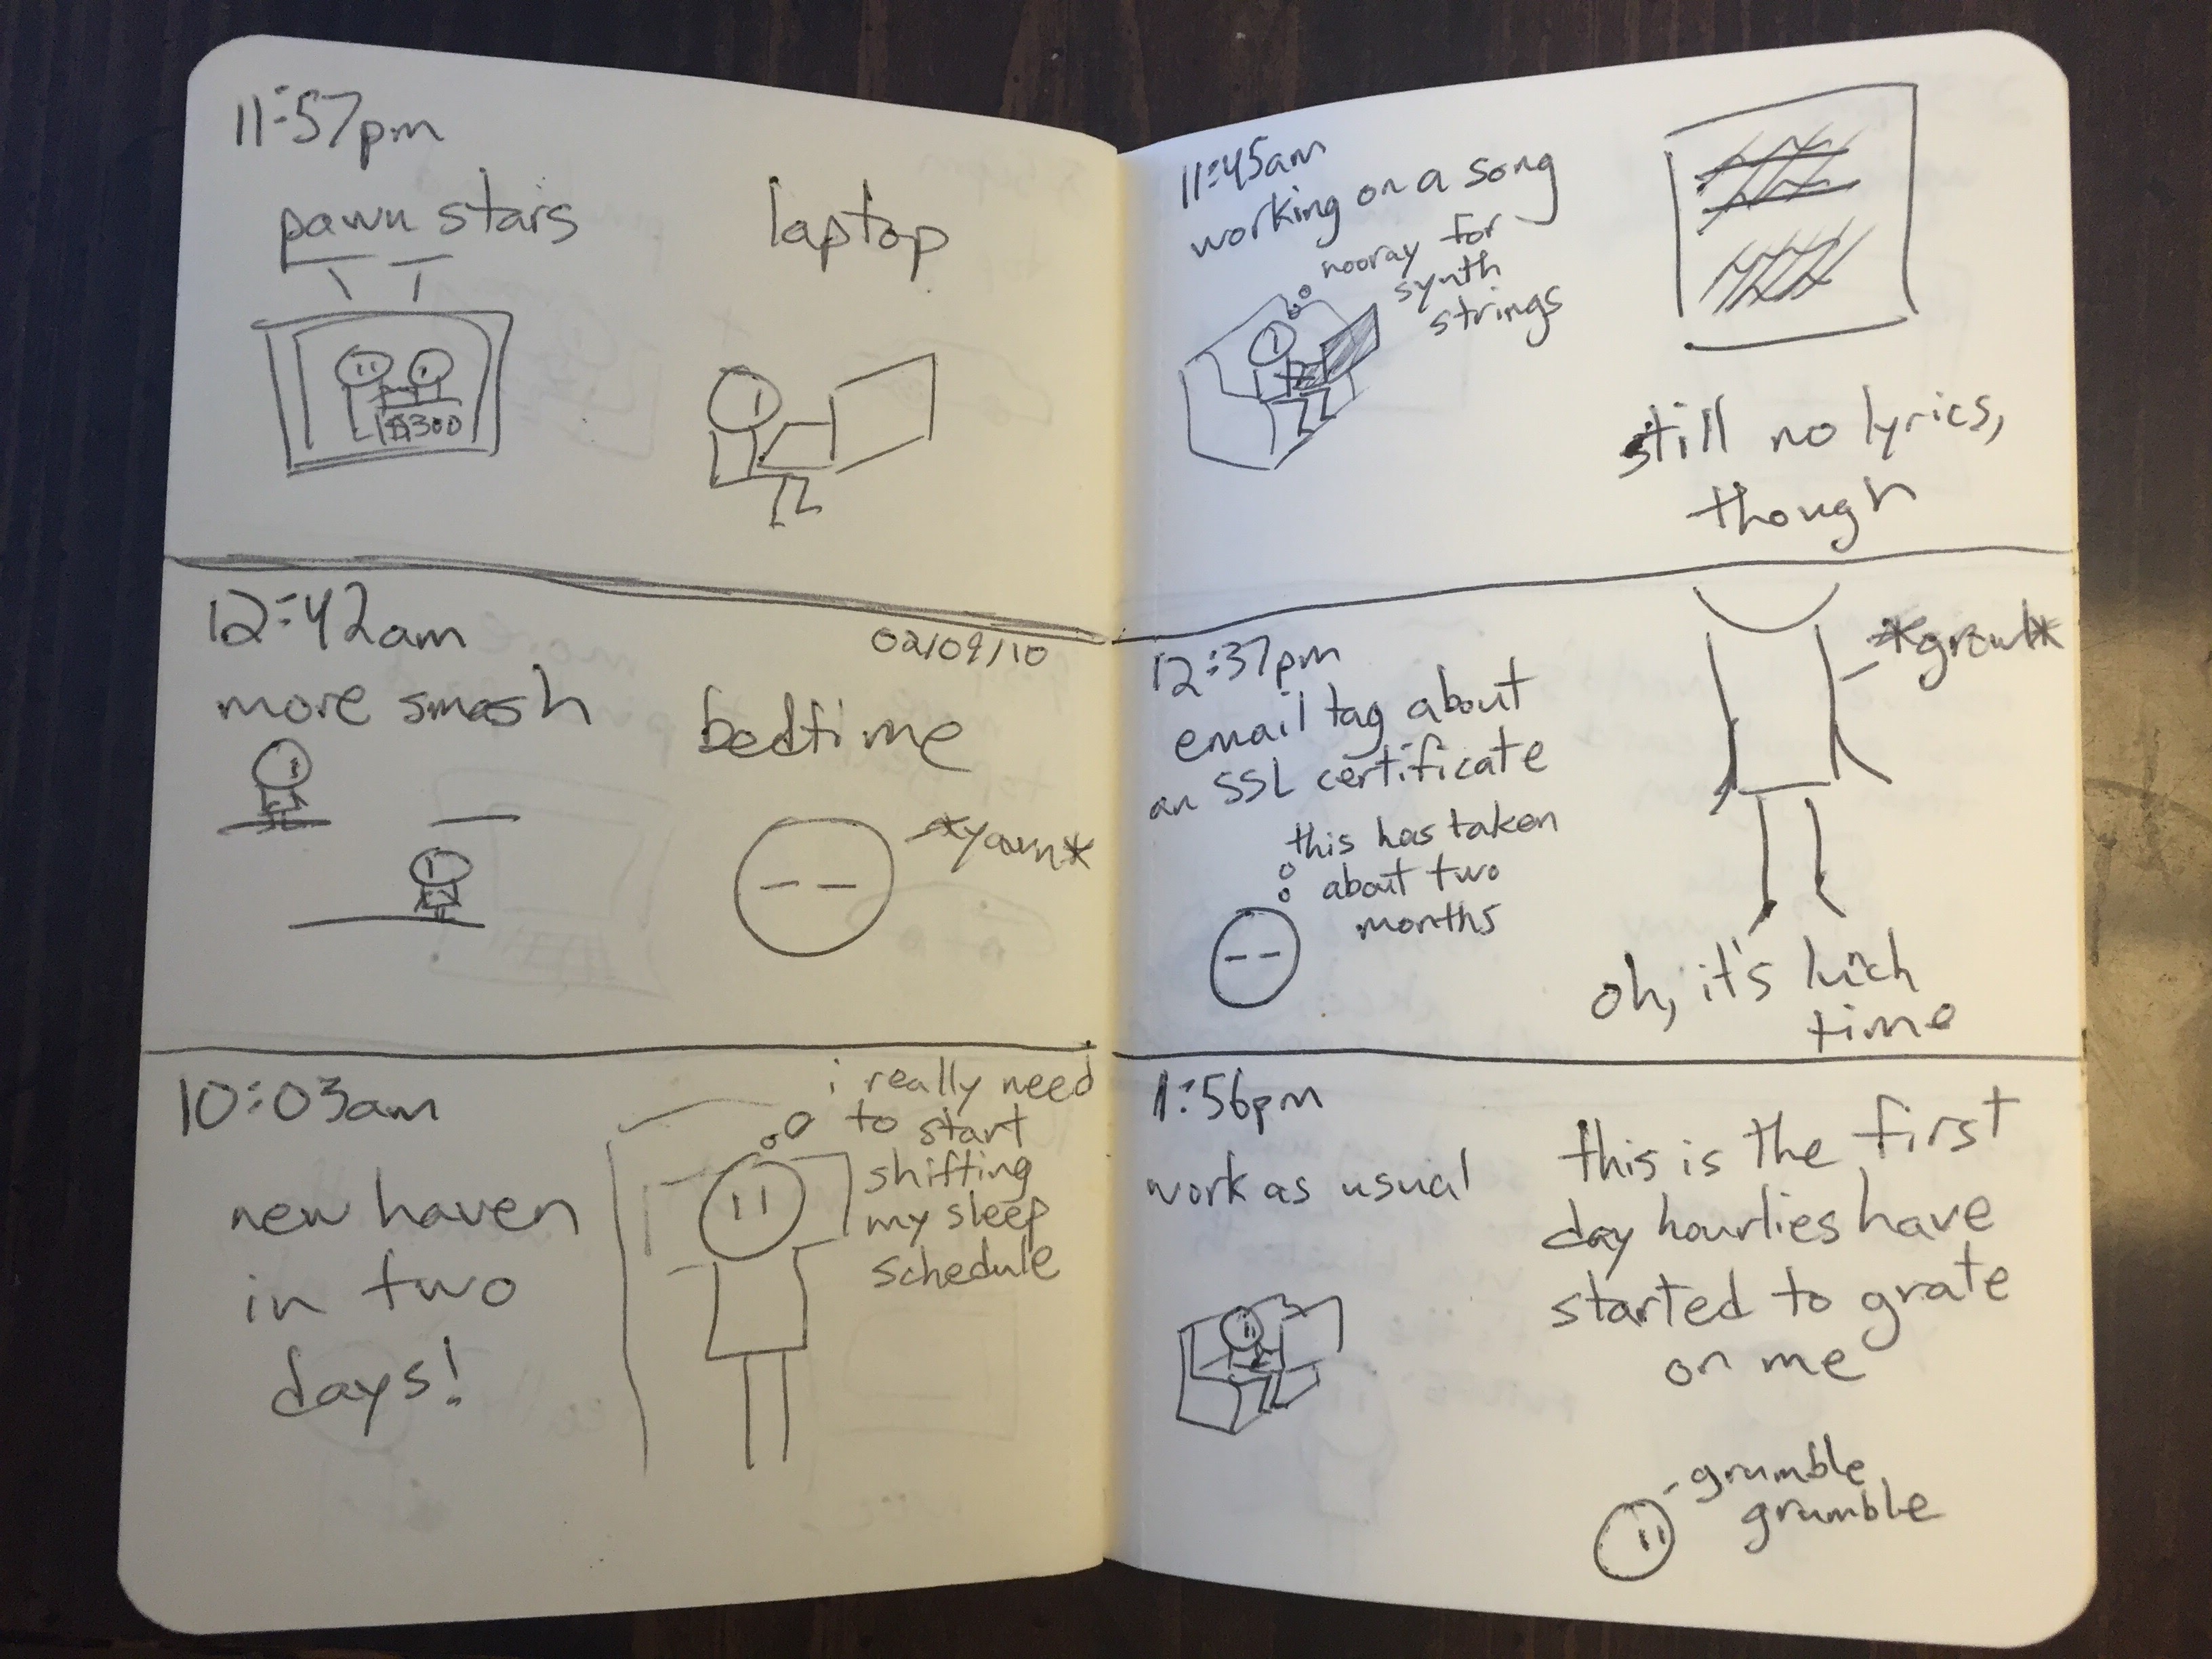 11:57pm
pawn stars
$300
laptop
12:42am
02/09/10
more smash
bedtime
*yawn*
10:03am
new haven
in two
days!
i really need
to start
shifting
my sleep
schedule
11:45am
working on a song
hooray for
synth
strings
still no lyrics,
though
12:37pm
email tag about
an SSL certificate
this has taken
about two
months
*growl*
oh, it's lunch
time
1:56pm
work as usual
this is the first
day hourlies have
started to grate
on me
grumble
grumble